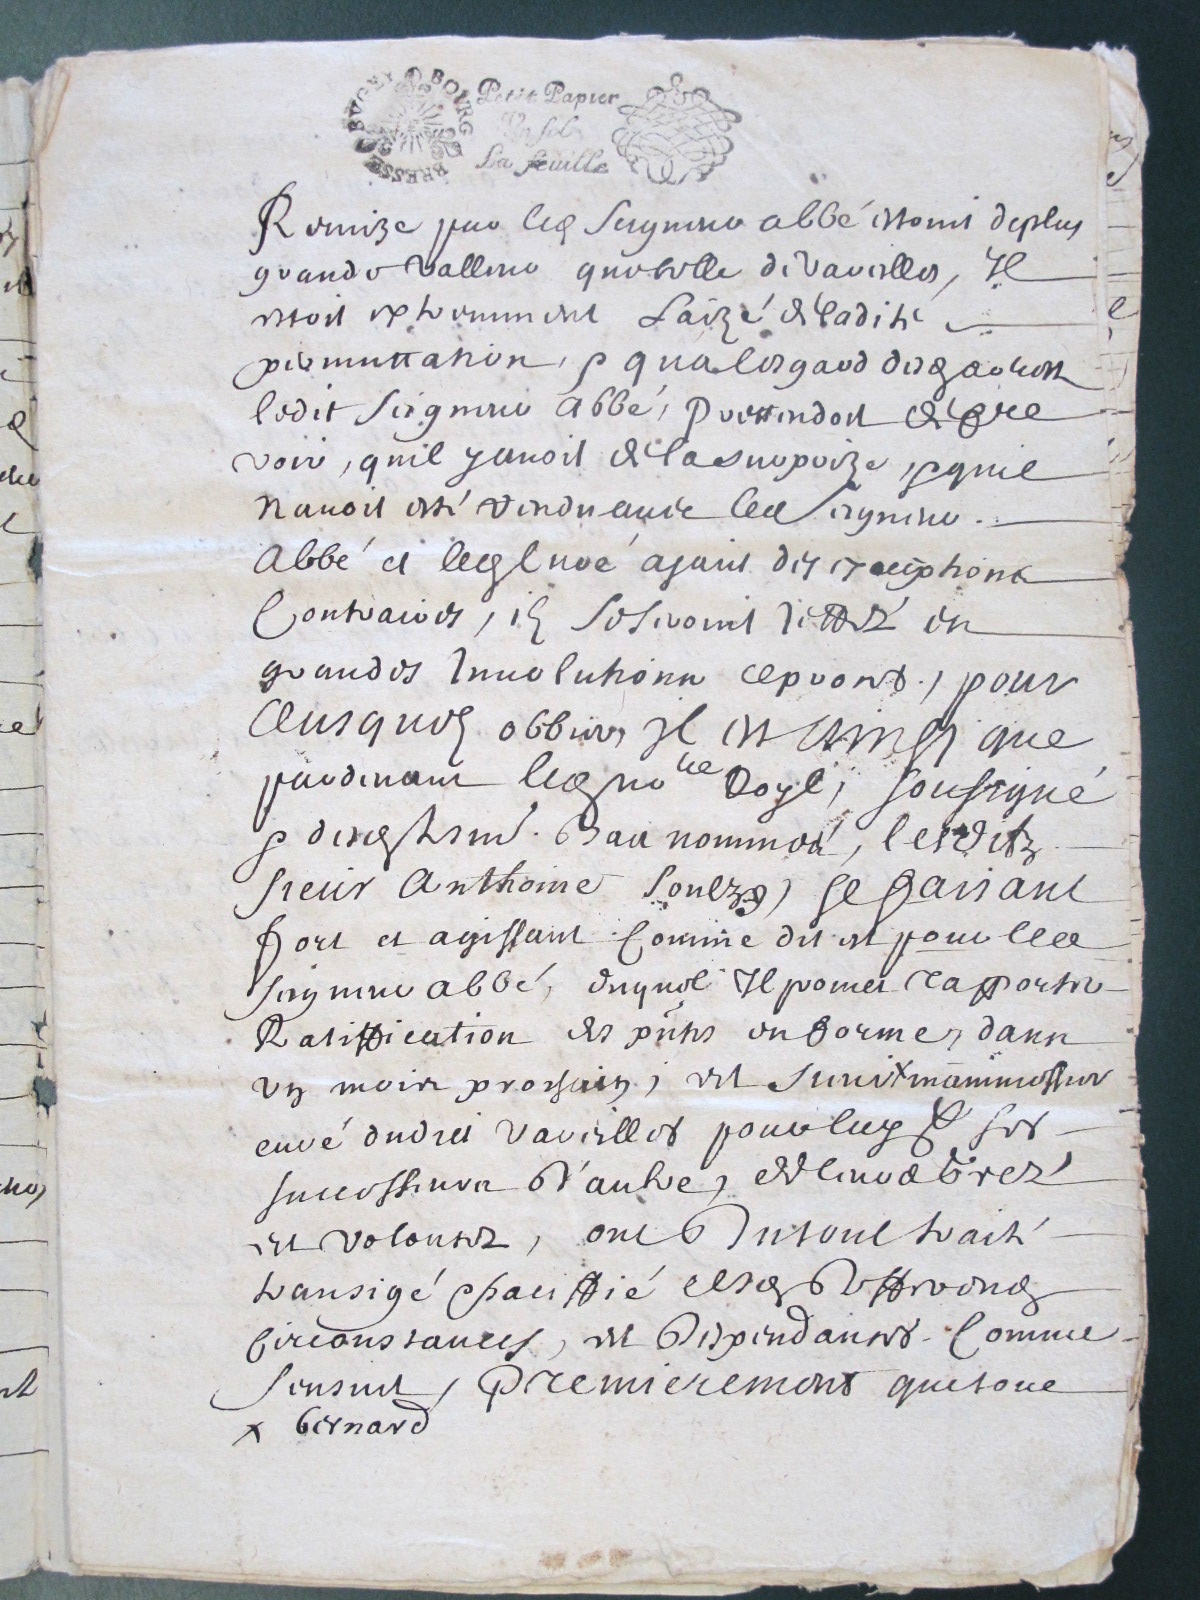 BUGEY BOURG BRESSE
Petit Papier
Un sol
La feuille
Remize par led Seigneur abbé estoint de plus
grande valleur que celle de Vavrilles, Il
estoit extremement Laizé de ladite
permuttation, qua lesgard des
ledit Seigneur Abbé, prettendoit de
voir, quil y avoit de la surprize, quil
Navoit esté Vendu avec led Seigneur
Abbé et led Curé ayant des exceptions
Contraires, ilz seseroint jettéz en
grandes Involutions de proces, pour
ausquelz obbier, Il est ainsi que
pardevant led no.re Royl, soussigné
Bas nommés, lesditz
sieur Anthoine se faisant
fort et agissant Comme dit est pour led
seigneur abbé, duquel Il promet rapporter
Ratiffication des pntes en forme, dans
un mois prochain, et x
curé dudit Vavrilles pour luy & ses
successeurs D'autre, de leurs grez
et volontez, ont traité
transigé paciffié
circonstances, et Despendances Comme
sensuit, Premierement que tout
x bernard